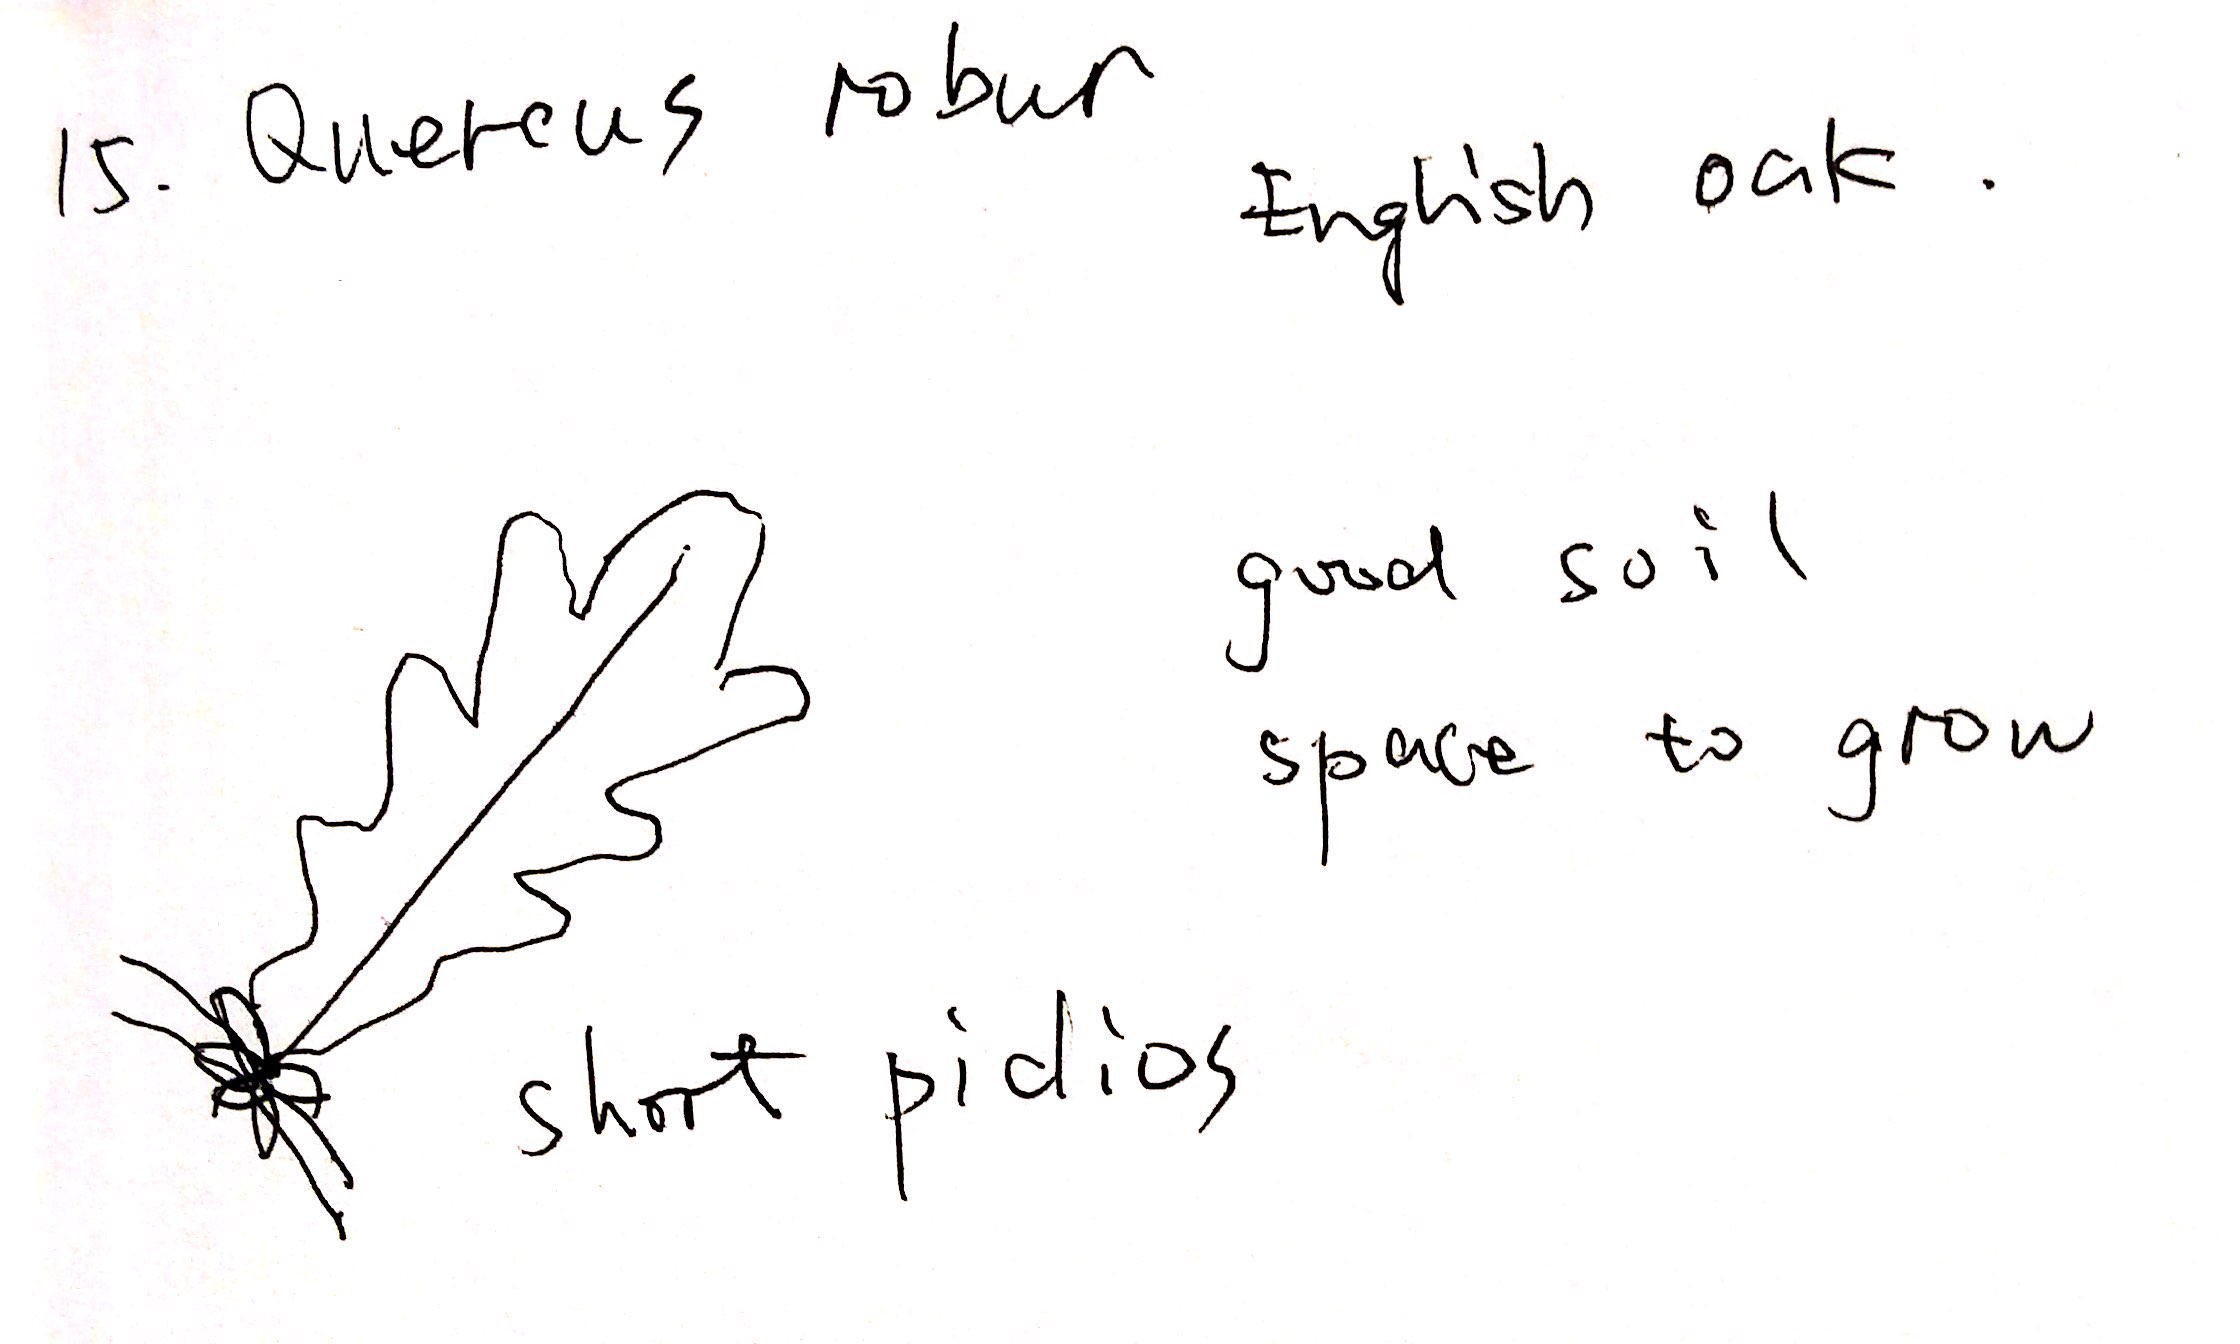 15. Quercus robur
English oak.
good soil
space to grow
short pidios